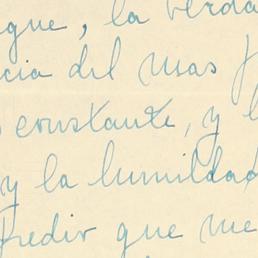 gue, la verda
cia del mas
constante, y l
y la humildad
Pedir que me